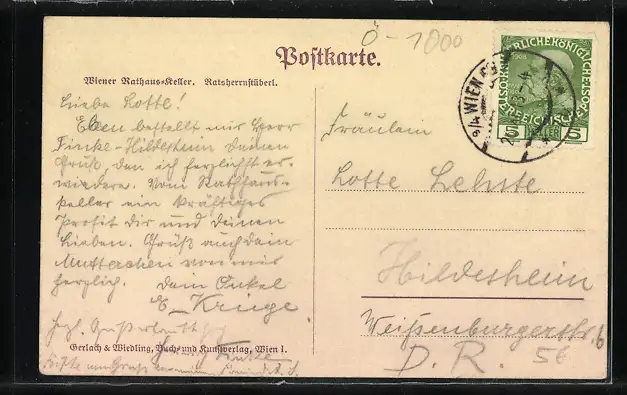 Ö-1000
Postkarte.
Wiener Rathaus-Keller. Ratsherrnstüberl.
Liebe Lotte!
Eben bestellt mir Herr
Finke-Hildesheim Deinen
Gruß, den ich herzlichst er-
wiedere. Vom Rathhaus-
keller ein kräftiges
Prosit Dir und Deinen
Lieben. Gruß auch Dein
Mutterchen von mir
herzlich. Dein Onkel
E. Kruge
Gerlach & Wiedling, Buch- und Kunstverlag, Wien I.
WIEN
5 HELLER 5
Fräulein
Lotte Lehste
Hildesheim
Weißenburgerstr. 6
D. R. 5€